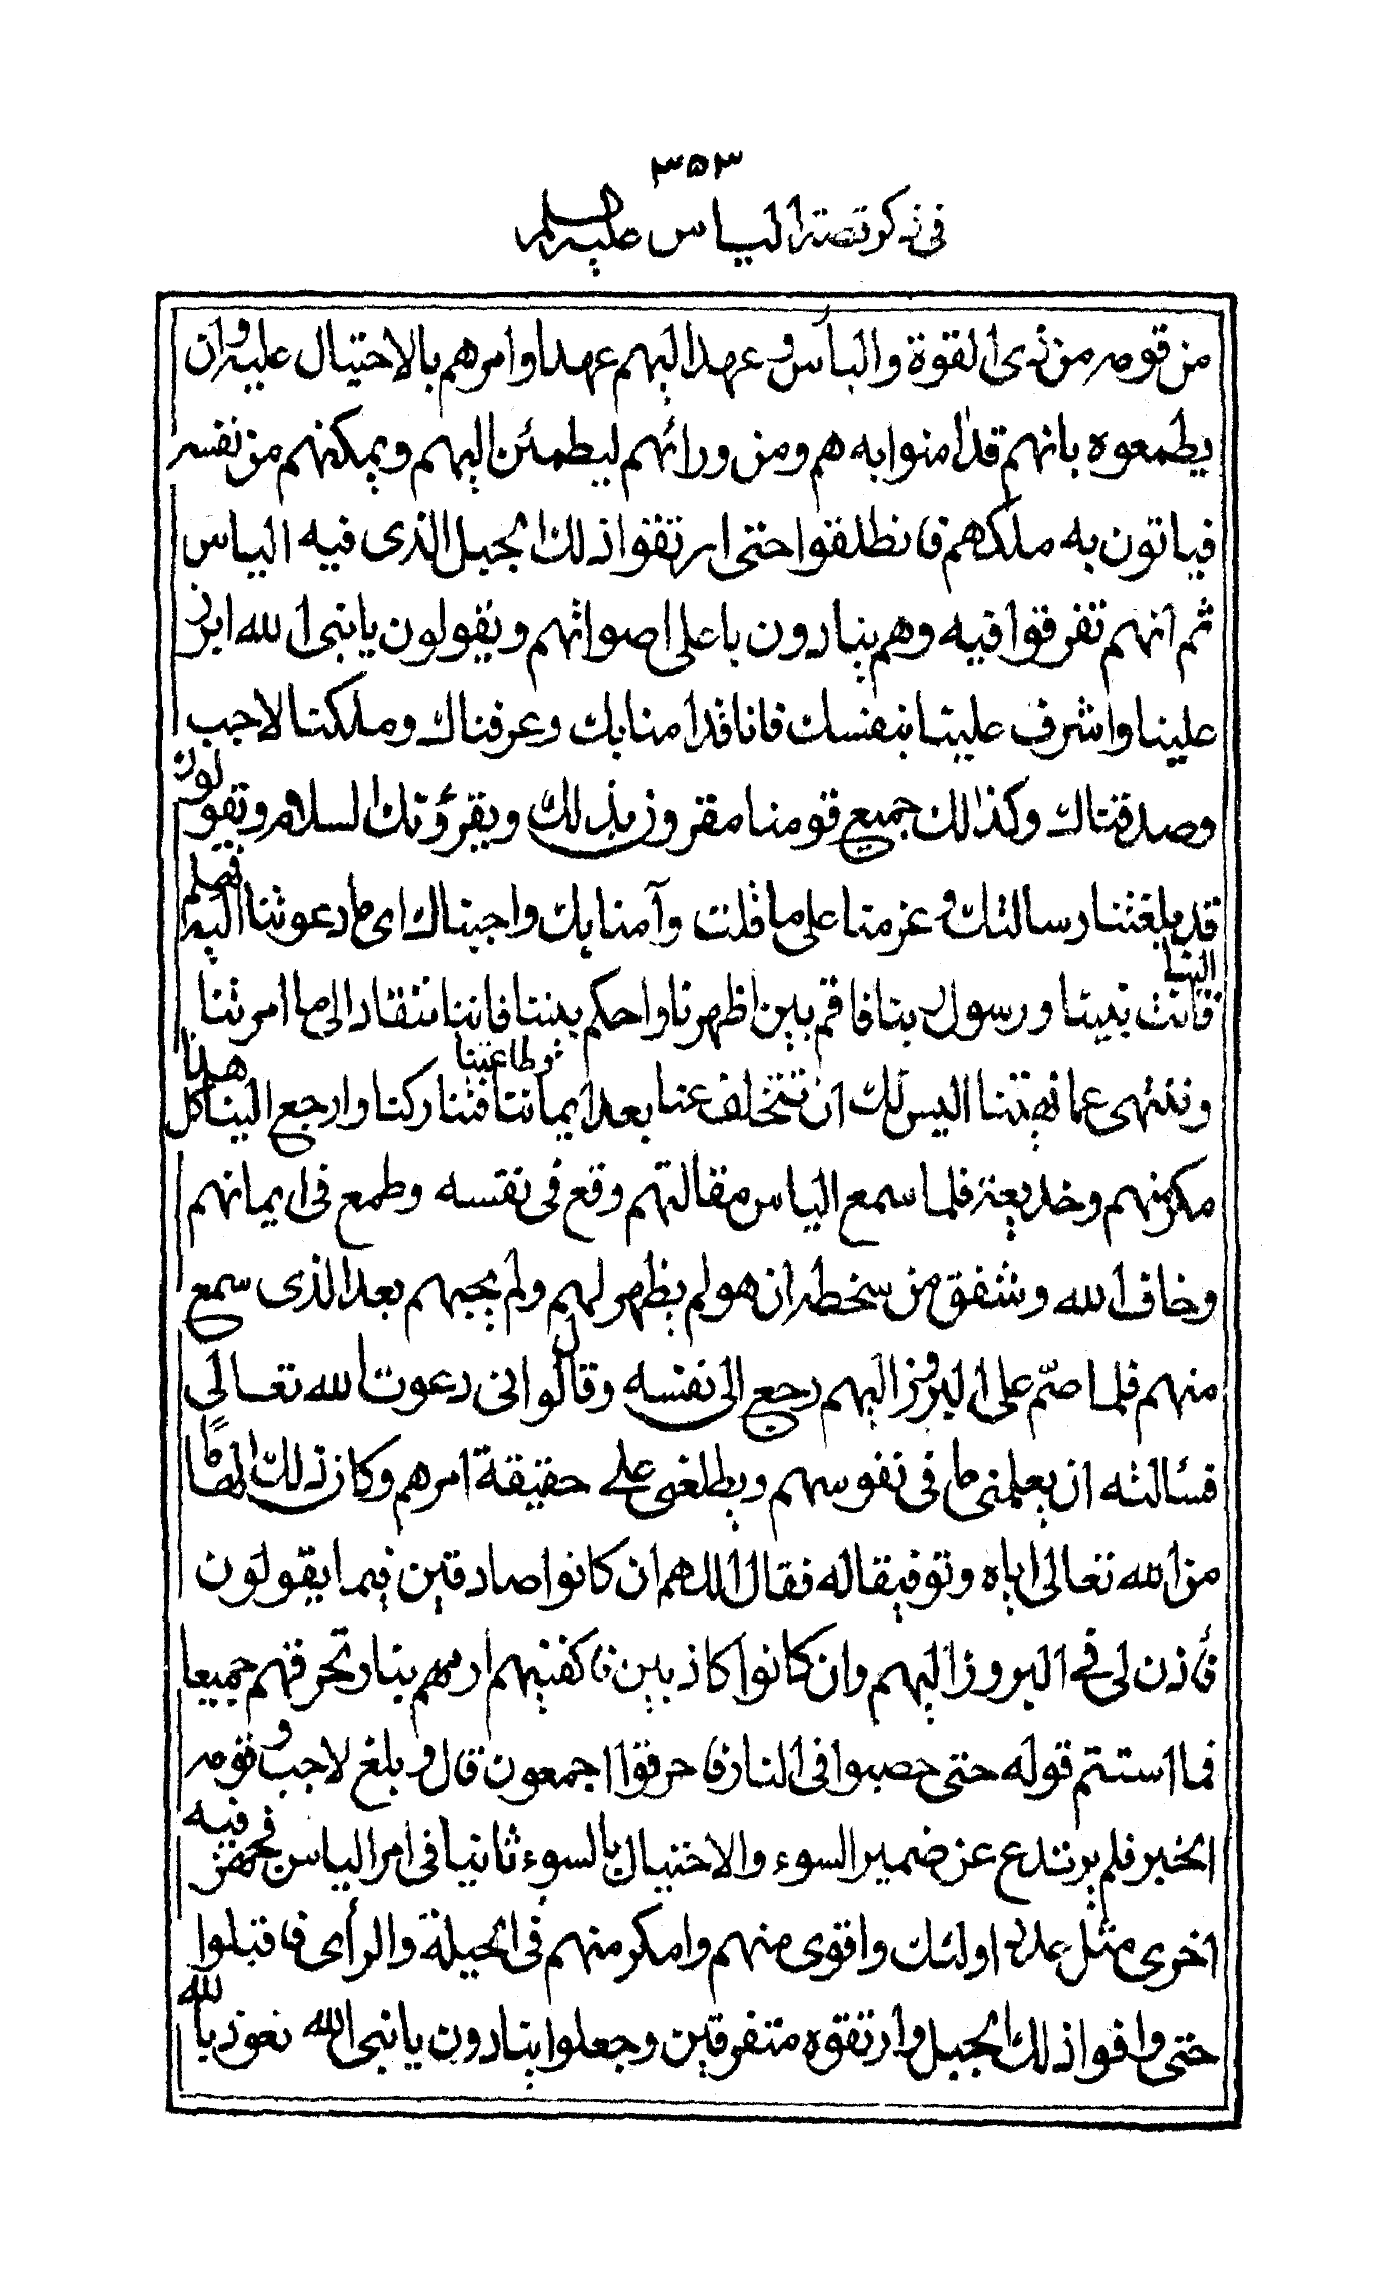 ۳۵۳
فی ذکر قصة الیاس علیه السلم
من قومه من ذی القوة والبأس و عهد الیهم عهدا وامرهم بالاحتیال علیه وان
یطمعوه بانهم قد امنوا به هم ومن ورائهم لیطمئن الیهم ویمکنهم من نفسه
فیاتون به ملکهم فانطلقوا حتی ارتقوا ذلك الجبل الذی فیه الیاس
ثم انهم تفرقوا فیه وهم ینادون باعلی اصواتهم ویقولون یا نبی الله ابرز
علینا واشرف علینا بنفسك فانا قد امنا بك وعرفناك وملکنا لاجب
وصدقناك وکذلك جمیع قومنا مقرون بذلك ویقرؤنك السلام ویقولون
قد بلغتنا رسالتك و عزمنا علی ما قلت وآمنا بك واجبناك ای ما دعوتنا الیه فهلم الینا
فانت نبینا ورسول ربنا فاقم بین اظهرنا واحکم بیننا فاننا ننقاد الی ما امرتنا
وننتهی عما نهیتنا الیس لك ان تتخلف عنا بعد ایماننا وطاعتنا فتدارکنا وارجع الینا کل هذا
مکر منهم وخدیعة فلما سمع الیاس مقالتهم وقع فی نفسه وطمع فی ایمانهم
وخاف الله وشفق من سخطه ان هو لم یظهر لهم ولم یجبهم بعد الذی سمع
منهم فلما صمم علی ان یبرز الیهم رجع الی نفسه وقال لو انی دعوت الله تعالی
فسألته ان یعلمنی ما فی نفوسهم ویطلعنی علی حقیقة امرهم وکان ذلك الهاما
من الله تعالی ایاه وتوفیقا له فقال اللهم ان کانوا صادقین فیما یقولون
فأذن لی فی البروز الیهم وان کانوا کاذبین فاکفنیهم ارمهم بنار تحرقهم جمیعا
فما استتم قوله حتی حصبوا فی النار فاحرقوا اجمعون قال و بلغ لاجب و قومه
الخبر فلم یرتدع عن ضمیر السوء والاحتیال بالسوء ثانیا فی امر الیاس فجهز فیه
اخری مثل عدد اولئك واقوی منهم وامکر منهم فی الحیلة والرأی فاقبلوا
حتی وافوا ذلك الجبل وارتقوه متفرقین وجعلوا ینادون یا نبی الله نعوذ بالله